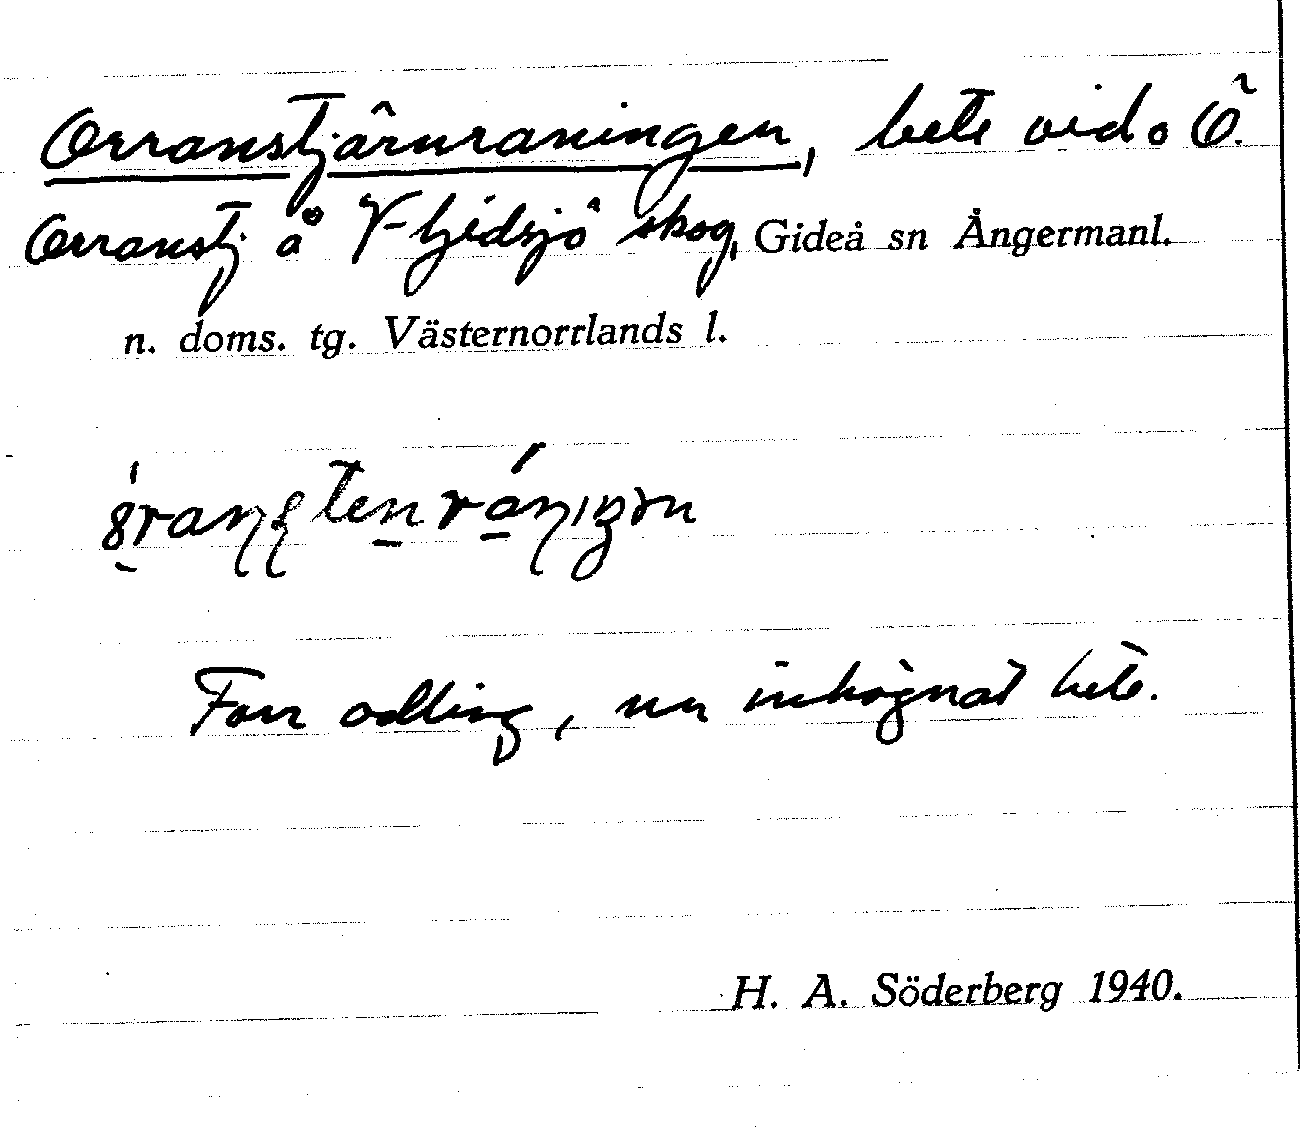 Orranstjärnraningen, bete vid o Ö.
Orranstj å V-Gideå sn Ångermanl.
n. doms. tg. Västernorrlands l.
Förr odling, nu inhägnat bete.
H. A. Söderberg 1940.